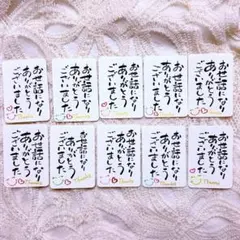 お世話になり
ありがとう
ございました
Thanks
お世話になり
ありがとう
ございました
Thanks
お世話になり
ありがとう
ございました
Thanks
お世話になり
ありがとう
ございました
Thanks
お世話になり
ありがとう
ございました
Thanks
お世話になり
ありがとう
ございました
Thanks
お世話になり
ありがとう
ございました
Thanks
お世話になり
ありがとう
ございました
Thanks
お世話になり
ありがとう
ございました
Thanks
お世話になり
ありがとう
ございました
Thanks